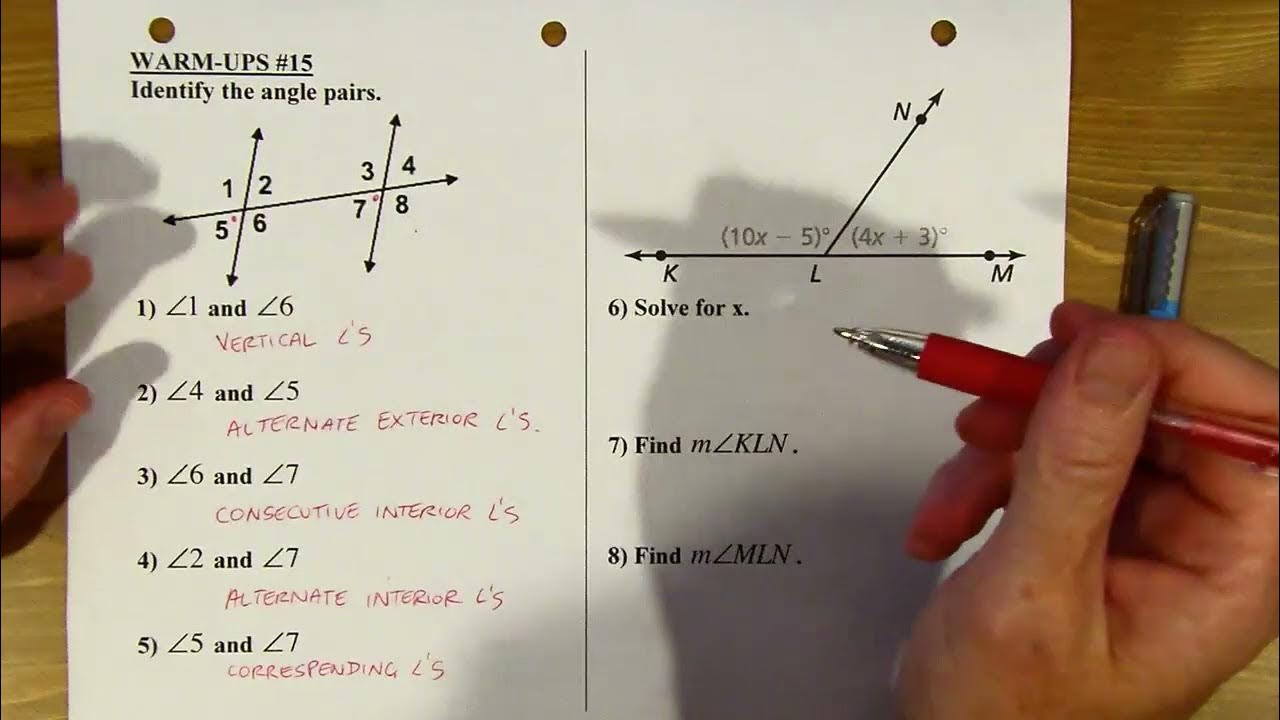 WARM-UPS #15
Identify the angle pairs.
1 2
3 4
5 6
7 8
1) ∠1 and ∠6
VERTICAL ∠'S
2) ∠4 and ∠5
ALTERNATE EXTERIOR ∠'S.
3) ∠6 and ∠7
CONSECUTIVE INTERIOR ∠'S
4) ∠2 and ∠7
ALTERNATE INTERIOR ∠'S
5) ∠5 and ∠7
CORRESPENDING ∠'S
N
(10x − 5)° (4x + 3)°
K L M
6) Solve for x.
7) Find m∠KLN.
8) Find m∠MLN.